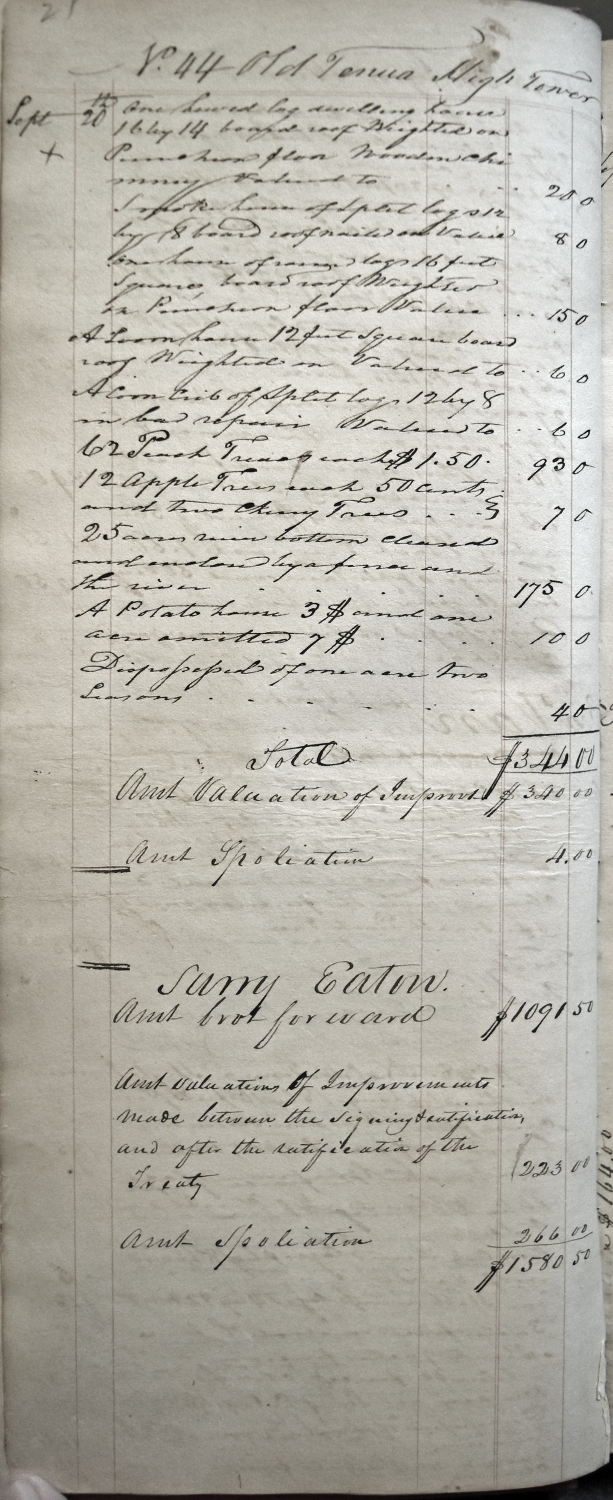 No. 44 Old Tenua High Tower
Sept 20th One hewed log dwelling house
16 by 14 board roof Weighted on
Puncheon floor Wooden Chi
mney Valued to 20 0
Smoke house of Split logs 12
by 8 board roof nailed on Value 8 0
One house of round logs 16 feet
Square board roof Weighted
on Puncheon floor Value 15 0
A Loom house 12 feet Square board
roof Weighted on Valued to 6 0
A Corn Crib of Split logs 12 by 8
in bad repair Valued to 6 0
62 Peach Trees each $1.50. 93 0
12 Apple Trees each 50 cents
and two Cherry Trees 7 0
25 acres river bottom cleared
and enclosed by a fence and
the river 175 0
A Potato house 3 $ and one
acre omitted 7 $ 10 0
Dispossessed of one acre two
Seasons 4 0
Total $344 00
Amt Valuation of Improvt $340 00
Amt Spoliation 4.00
Surry Eaton.
Amt brot forward $1091 50
Amt valuations of Improvements
made between the signing & ratification
and after the ratification of the
Treaty 223 00
Amt Spoliation 266 00
$1580 50
$164.00